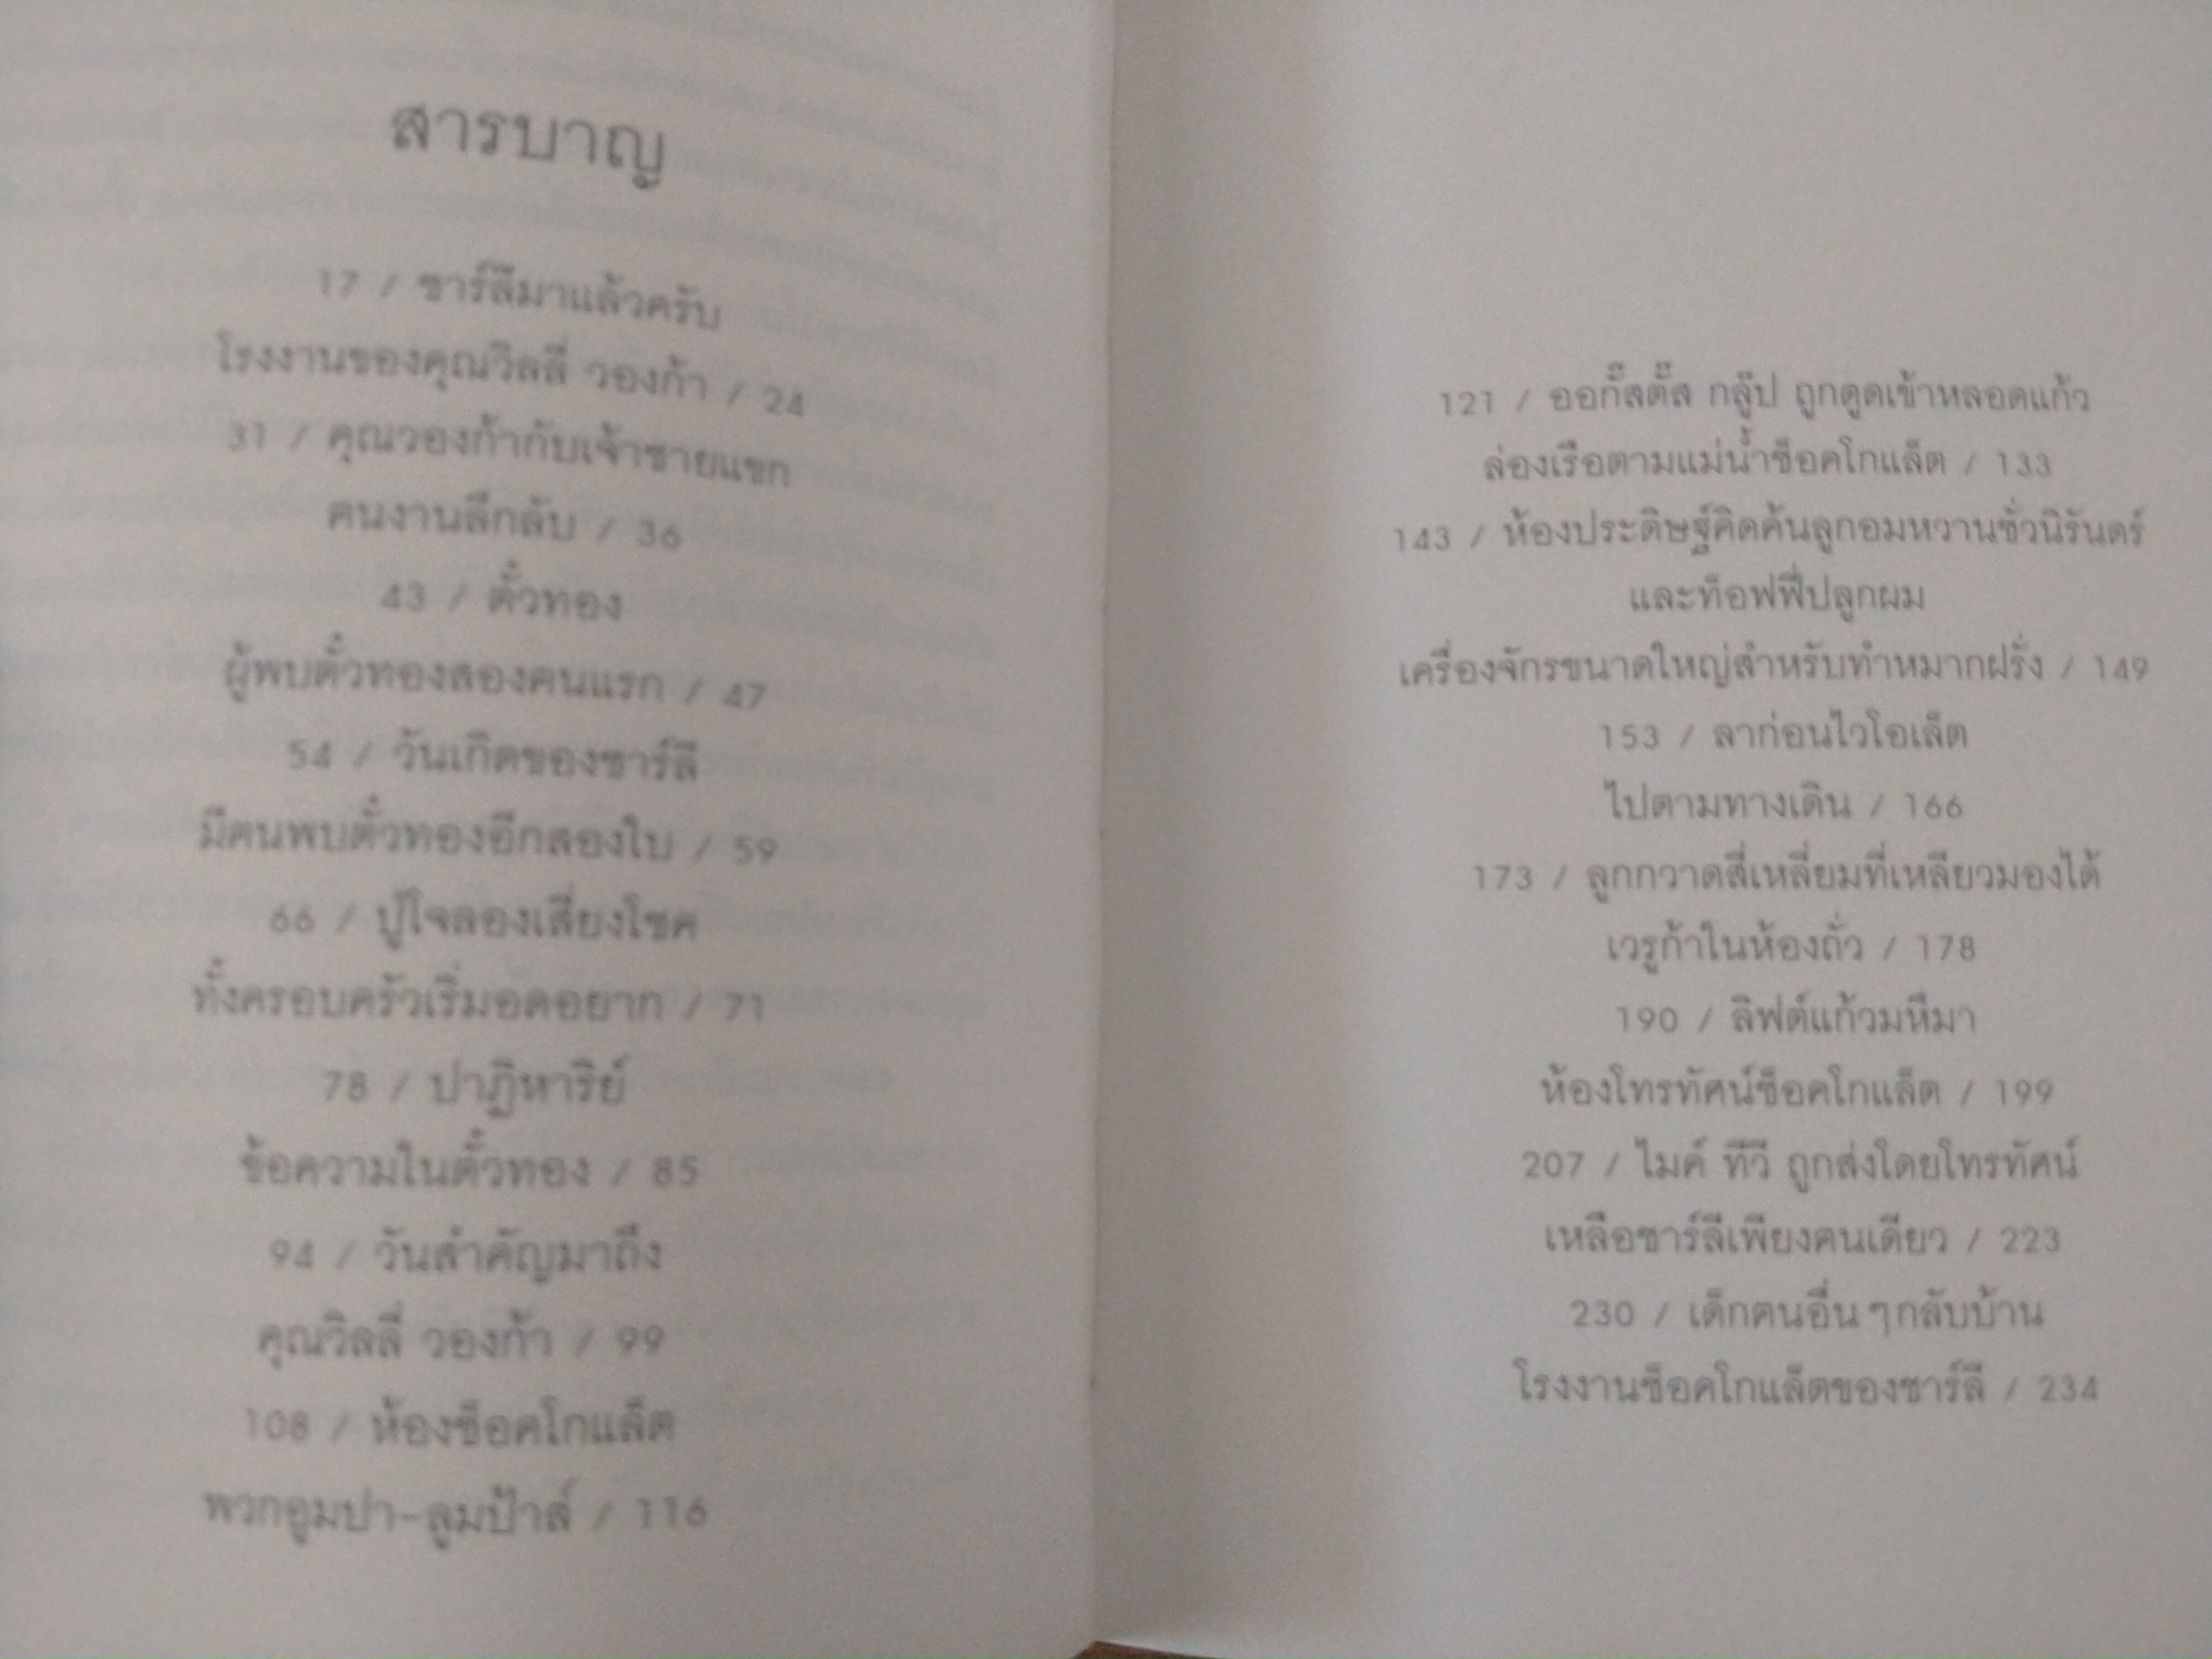 สารบาญ
17 / ชาร์ลีมาแล้วครับ
โรงงานของคุณวิลลี่ วองก้า / 24
31 / คุณวองก้ากับเจ้าชายแขก
คนงานลึกลับ / 36
43 / ตั๋วทอง
ผู้พบตั๋วทองสองคนแรก / 47
54 / วันเกิดของชาร์ลี
มีคนพบตั๋วทองอีกสองใบ / 59
66 / ปู่โจลองเสี่ยงโชค
ทั้งครอบครัวเริ่มอดอยาก / 71
78 / ปาฏิหาริย์
ข้อความในตั๋วทอง / 85
94 / วันสำคัญมาถึง
คุณวิลลี่ วองก้า / 99
108 / ห้องช็อคโกแล็ต
พวกอูมปา-ลูมป้าส์ / 116
121 / ออกั๊สตั๊ส กลู๊ป ถูกดูดเข้าหลอดแก้ว
ล่องเรือตามแม่น้ำช็อคโกแล็ต / 133
143 / ห้องประดิษฐ์คิดค้นลูกอมหวานชั่วนิรันดร์
และท็อฟฟี่ปลูกผม
เครื่องจักรขนาดใหญ่สำหรับทำหมากฝรั่ง / 149
153 / ลาก่อนไวโอเล็ต
ไปตามทางเดิน / 166
173 / ลูกกวาดสี่เหลี่ยมที่เหลียวมองได้
เวรูก้าในห้องถั่ว / 178
190 / ลิฟต์แก้วมหึมา
ห้องโทรทัศน์ช็อคโกแล็ต / 199
207 / ไมค์ ทีวี ถูกส่งโดยโทรทัศน์
เหลือชาร์ลีเพียงคนเดียว / 223
230 / เด็กคนอื่น ๆ กลับบ้าน
โรงงานช็อคโกแล็ตของชาร์ลี / 234